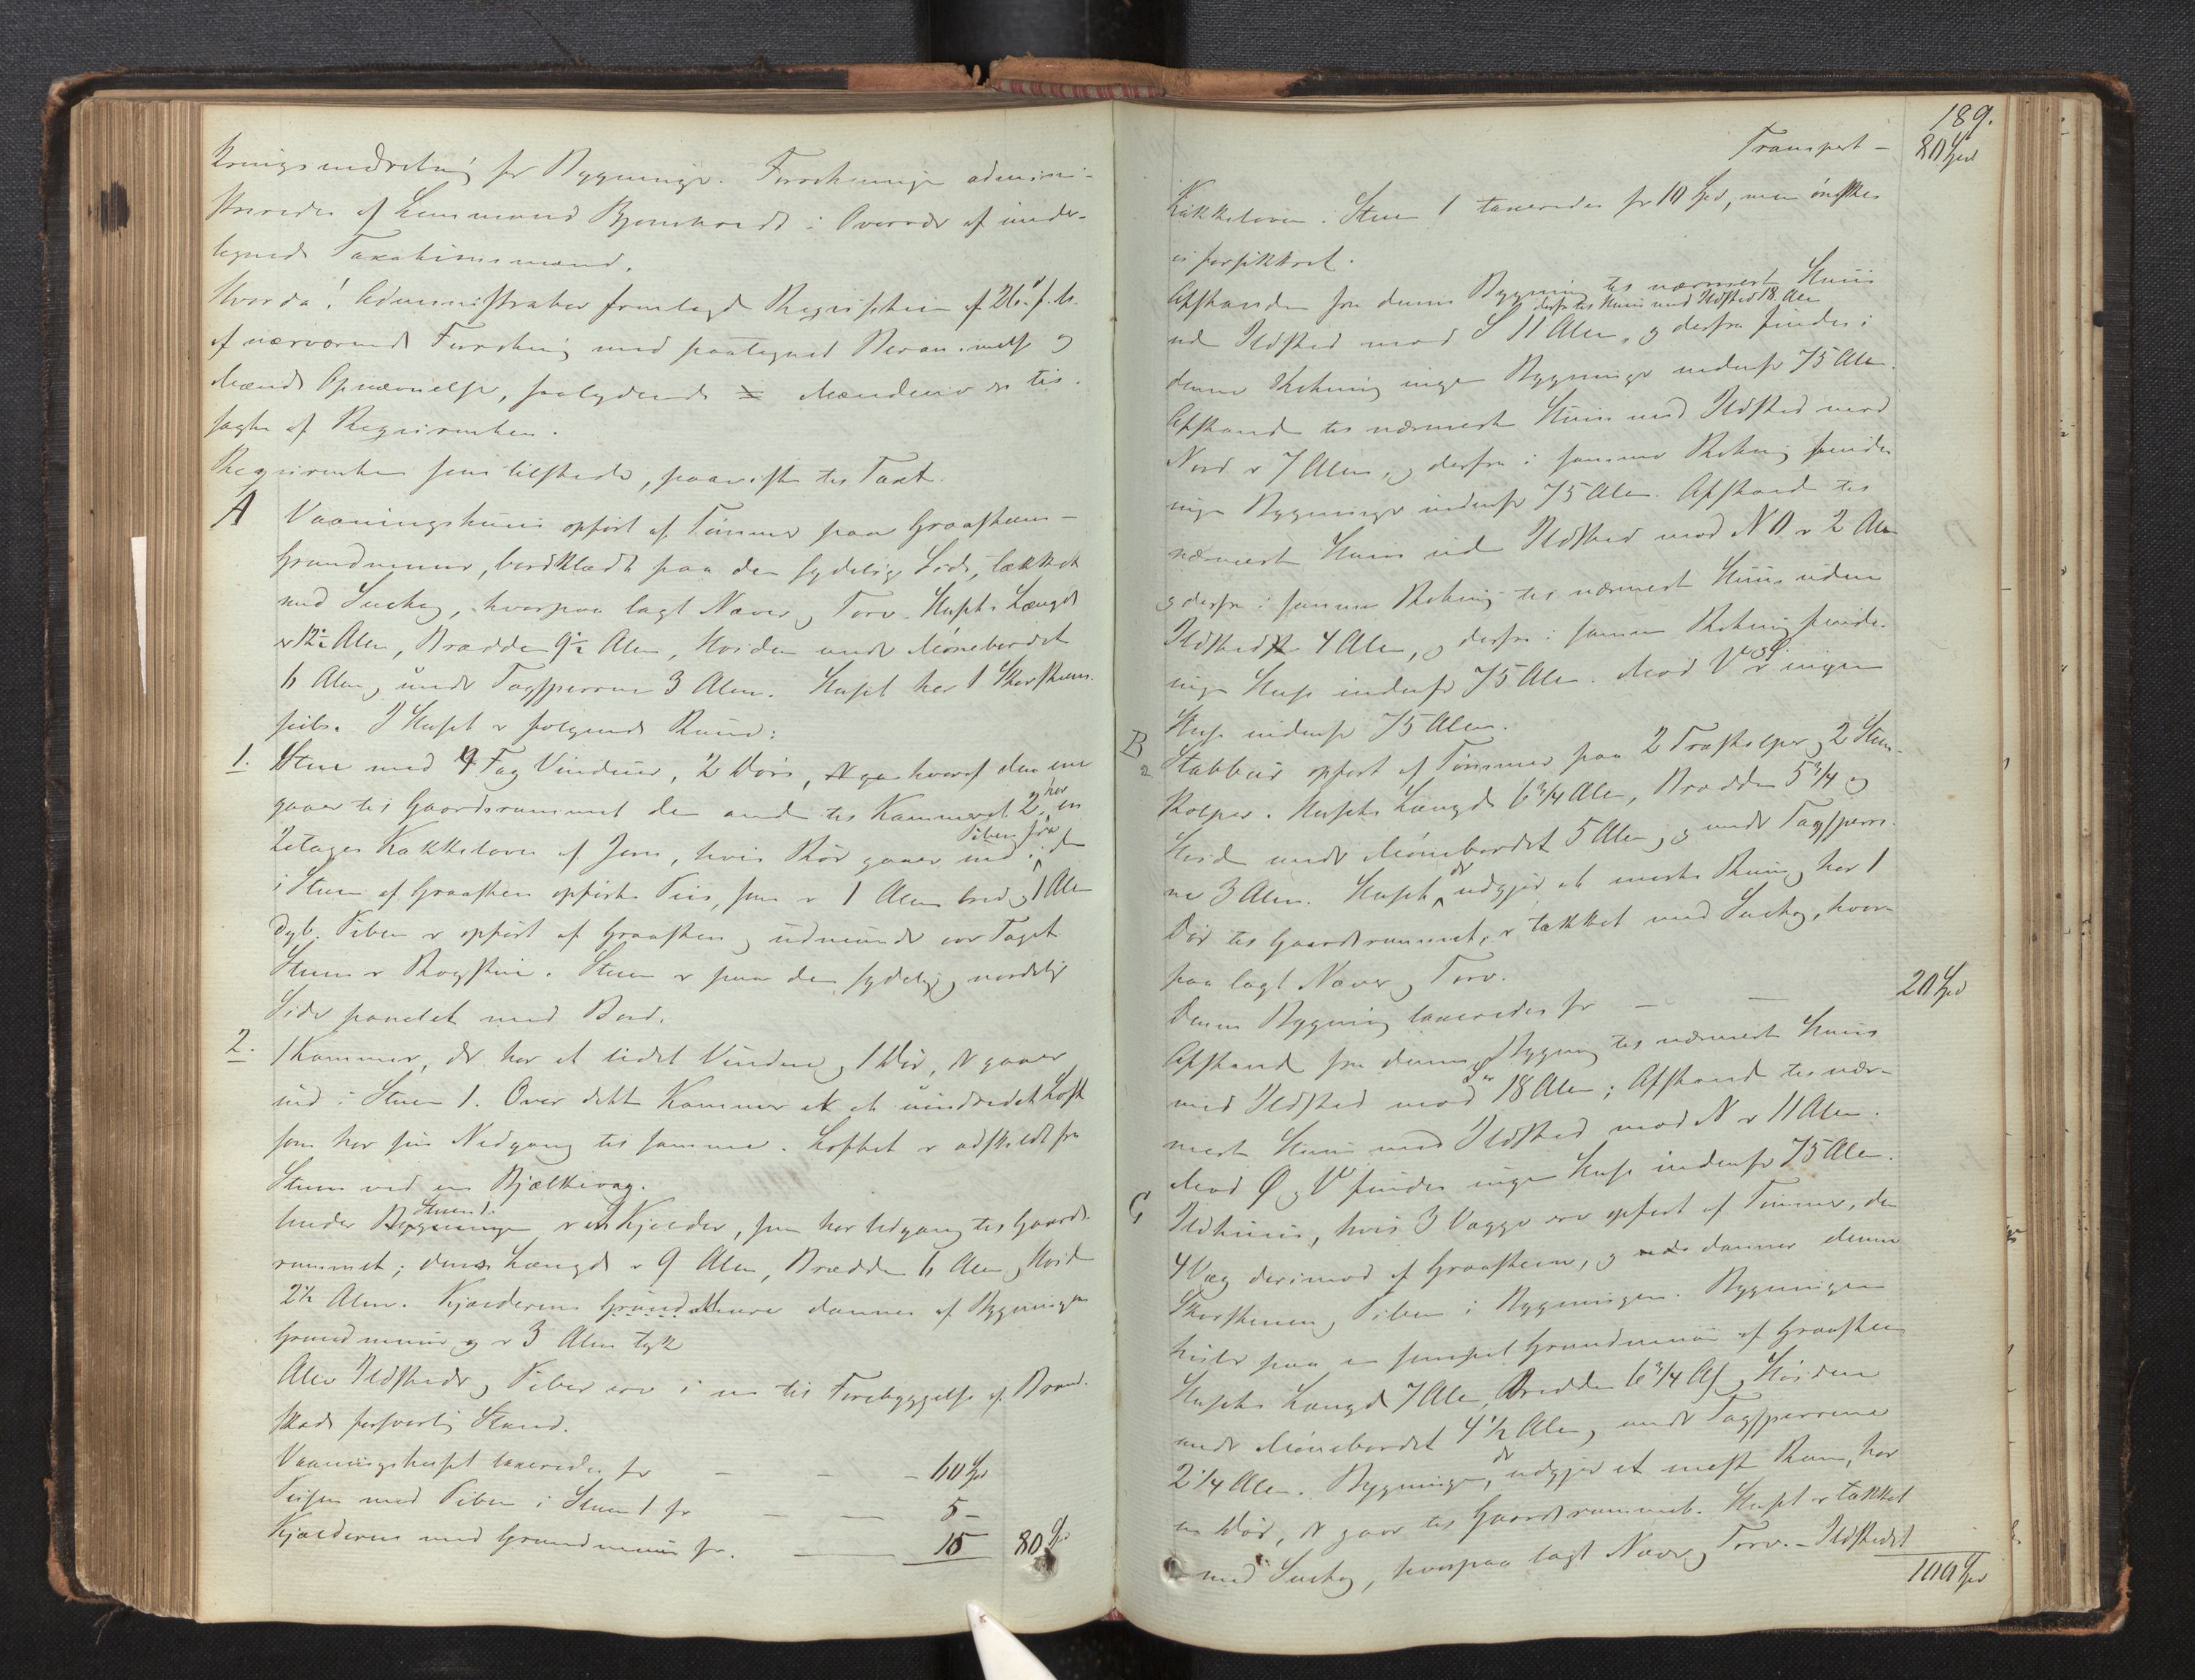 kringsindretning for Bygninger. Forretningen admini-
streredes af Lensmand Bjornstrødt i Overvær af under-
tegnede Taxationsmænd.
Hvorda! Administrator fremlagde Reqvisition af 26. f. M.
af nærværende Forretning med paategnet Beram. melse og
Mænds Opnævnelse, saalydende Mændene er til-
sagte af Reqvirenten.
Reqvirenten som tilstede, paaviste til Taxt.
A Vaaningshuus opført af Tømmer paa Graasteens-
Grundmuur, bordklædt paa den sydelige Side, tækket
med Sutag, hvorpaa lagt Næver og Torv. Husets Længde
er 12½ Alen, Bredden 9½ Alen, Høiden under Mønebordet
6 Alen og under Tagsperrene 3 Alen. Huset har 1 Skorsteens-
pibe. I Huset er følgende Rum:
1. Stue med 4 Fag Vinduer, 2 Døre, hvoraf den ene
gaaer til Gaardsrummet den anden til Kammeret 2, har en
2etages Kakkelovn af Jern, hvis Rør gaaer ind i Piben fra den
i Stuen af Graasteen opførte Piis, som er 1 Alen bred og 1 Alen
dyb. Piben er opført af Graasteen og udmunder over Taget
Stuen er Røgstue. Stuen er paa den sydelige og nordelige
Side panelet med Bord.
2. 1 Kammer, der har et lidet Vindue og 1 Dør, der gaaer
ind i Stuen 1. Over dette Kammer er et uindredet Loft
som har sin Nedgang til samme. Loftet er adskildt fra
Stuen ved en Bjælkevæg.
Under Stuen 1. er en Kjælder, som har Udgang til Gaards-
rummet; dens Længde er 9 Alen, Bredden 6 Alen og Høide
2½ Alen. Kjælderens Grundmure dannes af Bygningens
Grundmuur og er 3 Alen tyk
Alle Ildsteder og Piber ere i en til Forebyggelse af Brand-
skade forsvarlig Stand.
Vaaningshuset taxeredes for - - - 60 Spd
Peisen med Piben i Stuen 1 for - — 5 -
Kjælderen med Grundmuur for. — 15 80 Spd
189.
Transport - 80 Spd
Kakkelovnen i Stuen 1 taxeredes for 10 Spd, men ønskes
ei forsikkret.
Afstanden fra denne Bygning til nærmeste Huus
uden Ildsted mod S 11 Alen, og derfra til Huus med Ildsted 18 Alen og derfra findes i
denne Retning ingen Bygninger indenfor 75 Alen.
Afstanden til nærmeste Huus med Ildsted mod
Nord er 7 Alen, og derfra i samme Retning findes
ingen Bygninger indenfor 75 Alen. Afstand til
nærmeste Huus uden Ildsted mod NO er 2 Alen
og derfra i samme Retning til nærmeste Huus uden
Ildsted 4 Alen, og derfra i samme Retning findes
ingen Huse indenfor 75 Alen. Mod V og er ingen
Huse indenfor 75 Alen.
B Stabbuur opført af Tømmer paa 2 Træstolper og 2 Steen-
stolper. Husets Længde 6¾ Alen, Bredden 5¾ og
Høiden under Mønebordet 5 Alen, og under Tagsperre-
ne 3 Alen. Huset, der udgjør et eneste Rum, har 1
Dør til Gaardsrummet, er tækket med Sutag, hvor-
paa lagt Næver og Torv.
Denne Bygning taxeredes for - — 20 Spd
Afstand fra denne Bygning til nærmeste Huus
med Ildsted mod S er 18 Alen; Afstand til nær-
meste Huus med Ildsted mod N er 11 Alen.
Mod Ø og V findes ingen Huse indenfor 75 Alen.
C Ildhuus, hvis 3 Vægge ere opført af Tømmer, den
4 Væg derimod af Graasteen, og danner denne
Skorstenen og Piben i Bygningen. Bygningen
hviler paa en simpel Grundmuur af Graasteen
Husets Længde 7 Alen, Bredden 6¾ Al og Høiden
under Mønebordet 4½ Alen, under Tagsperrene
2¼ Alen. Bygningen, der udgjør et eneste Rum, har
en Dør, der gaar til Gaardsrummet. Huset er tækket
med Sutag, hvorpaa lagt Næver og Torv. - Ildstedet
100 Spd